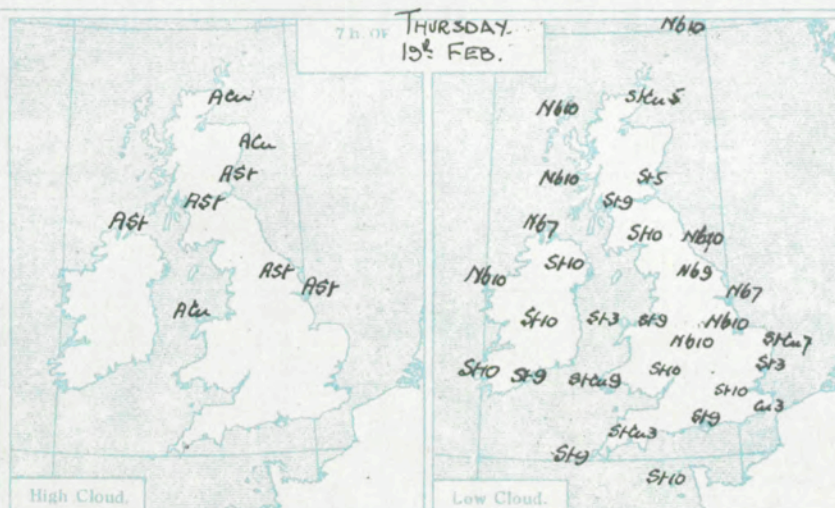 7 h. OF THURSDAY.
19th FEB.
ACu
ACu
ASt
ASt
ASt
ASt
ASt
ACu
High Cloud.
Nb10
StCu 5
Nb10
Nb10
St5
St9
Nb7
St10
Nb10
St10
Nb9
Nb10
Nb7
St10
St3
St9
Nb10
Nb10
StCu7
St10
St9
StCu9
St10
St3
St10
Cu3
St9
StCu3
St9
St10
Low Cloud.